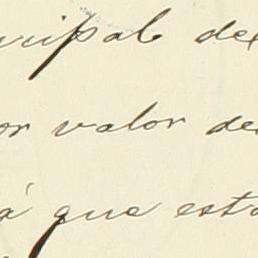 ncipal de
or valor de
á que esta